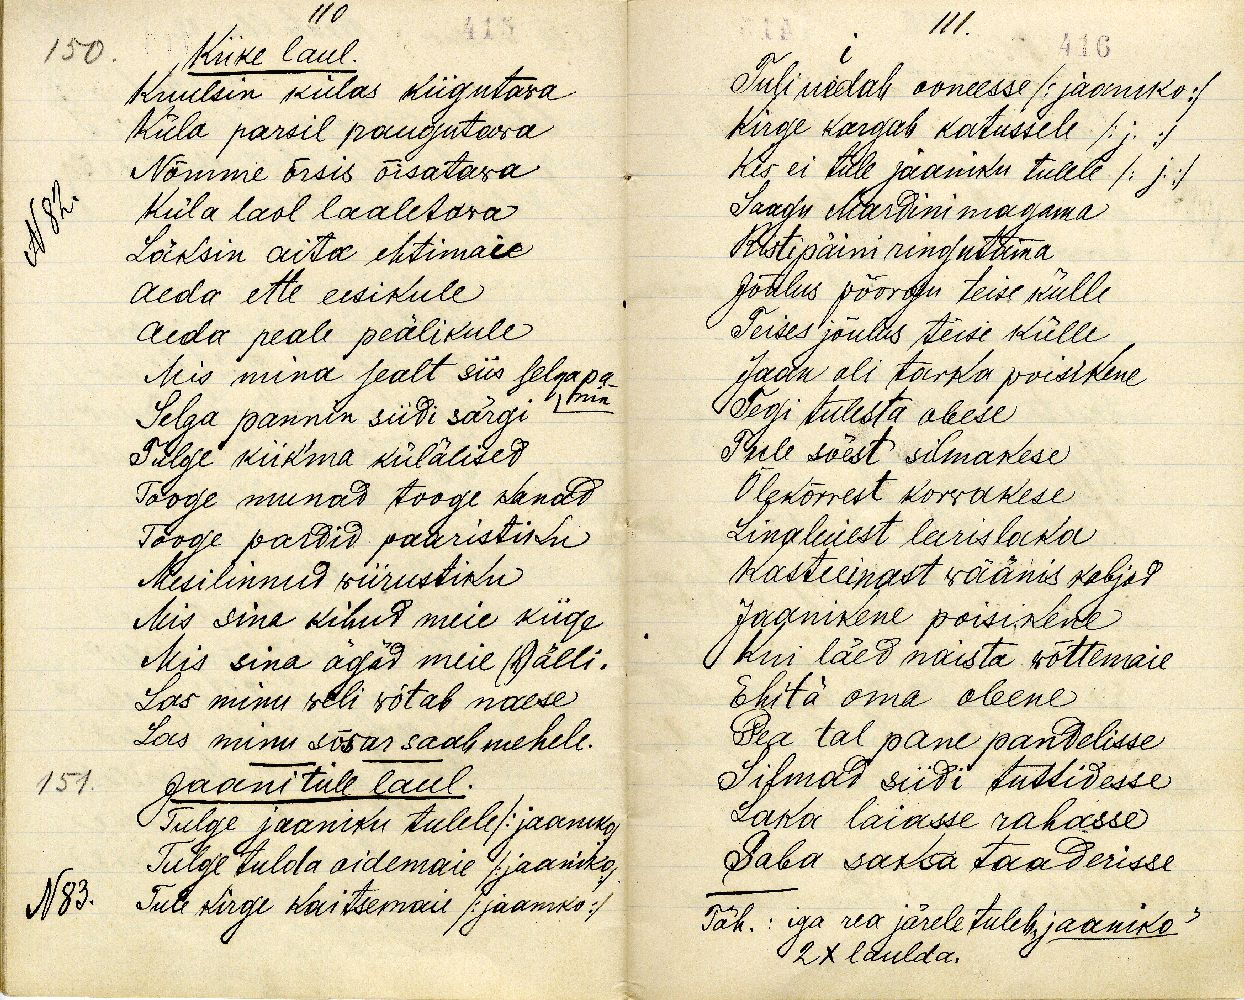 110
415
150.
Kiike laul.
Kuulsin külas kiigutawa
Küla parsil paugutawa
Nõmme õrsis õisatawa
Küla laol laaletawa
N 82.
Läksin aita ehtimaie
Aeda ette eesikule
Aeda peale peälikule
Mis mina sealt siis selga pa-
nnin
Selga pannin siidi särgi
Tulge kiik'ma külälised
Tooge munad tooge kanad
Tooge pardid paaristiku
Mesilinnud wiirustiku
Mis sina kihud meie kiige
Mis sina ägäd meie (h)älli.
Las minu weli wõtab naese
Las minu sõsar saab mehele.
151.
Jaanitule laul.
Tulge jaaniku tulele /: jaaniko,
Tulge tulda oidemaie /: jaaniko,
N 83.
Tule kirge kaitsemaie /: jaaniko :/
111.
416
i
Tuli uidab ooneesse /: jaaniko :/
Kirge kargab katussele /: j. :/
Kes ei tule jaaniku tulele /: j :/
Saagu Mardini magama
Ristipäini ringutama
Jõulus põõrogu teise külle
Teises jõulus teise külle
Jaan oli tarka poisikene
Tegi tulesta obese
Tule söest silmakese
Õlekõrrest korwakese
Linaluiest laris laka
Kasteeinast wäänis kabjad
Jaanikene poisikene
Kui läed naista wõttemaie
Ehitä oma obene
Pea tal pane pandelisse
Silmad siidi tuttidesse
Laka laiasse rahasse
Saba saksa taaderisse
Täh.: iga rea järele tuleb „jaaniko"
2 X laulda.